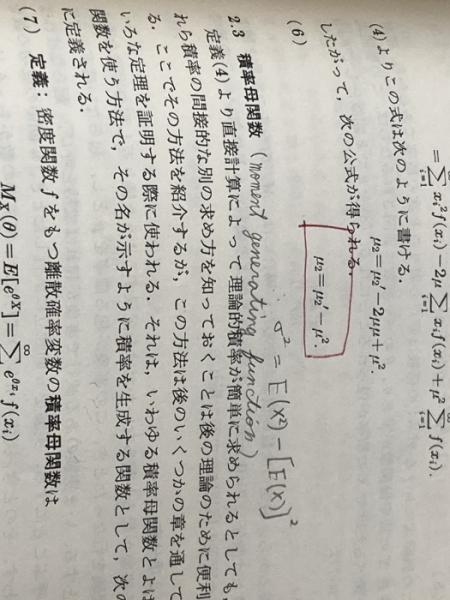 = Σ_{i=1}^∞ xᵢ²f(xᵢ) − 2μ Σ_{i=1}^∞ xᵢf(xᵢ) + μ² Σ_{i=1}^∞ f(xᵢ).
(4)よりこの式は次のように書ける.
μ₂=μ₂′−2μμ+μ².
したがって, 次の公式が得られる.
(6) μ₂=μ₂′−μ².
σ² = E(X²) − [E(X)]²
2.3 積率母関数 (moment generating function)
定義(4)より直接計算によって理論的積率が簡単に求められるとしても,
れら積率の間接的な別の求め方を知っておくことは後の理論のために便利
る. ここでその方法を紹介するが, この方法は後のいくつかの章を通して
いろな定理を証明する際に使われる. それは, いわゆる積率母関数とよば
関数を使う方法で, その名が示すように積率を生成する関数として, 次の
に定義される.
(7) 定義: 密度関数 f をもつ離散確率変数の積率母関数は
Mx(θ)=E[e^{θX}]=Σ^∞ e^{θxᵢ} f(xᵢ)